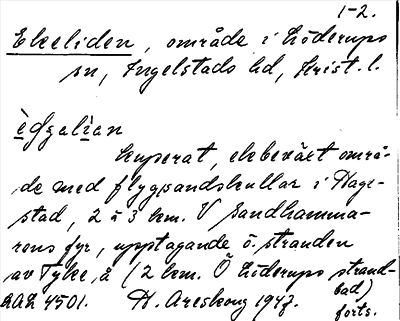 1-2.
Ekeliden, område i Löderups
sn, Ingelstads hd, Krist. l.
Kuperat, ekbeväxt områ-
de med flygsandskullar i Hage-
stad, 2 à 3 km. V Sandhamma-
rens fyr, upptagande ö. stranden
av Tyke å (2 km. Ö Löderups strand-
bad)
LAL 4501. H. Areskoug 1947. forts.